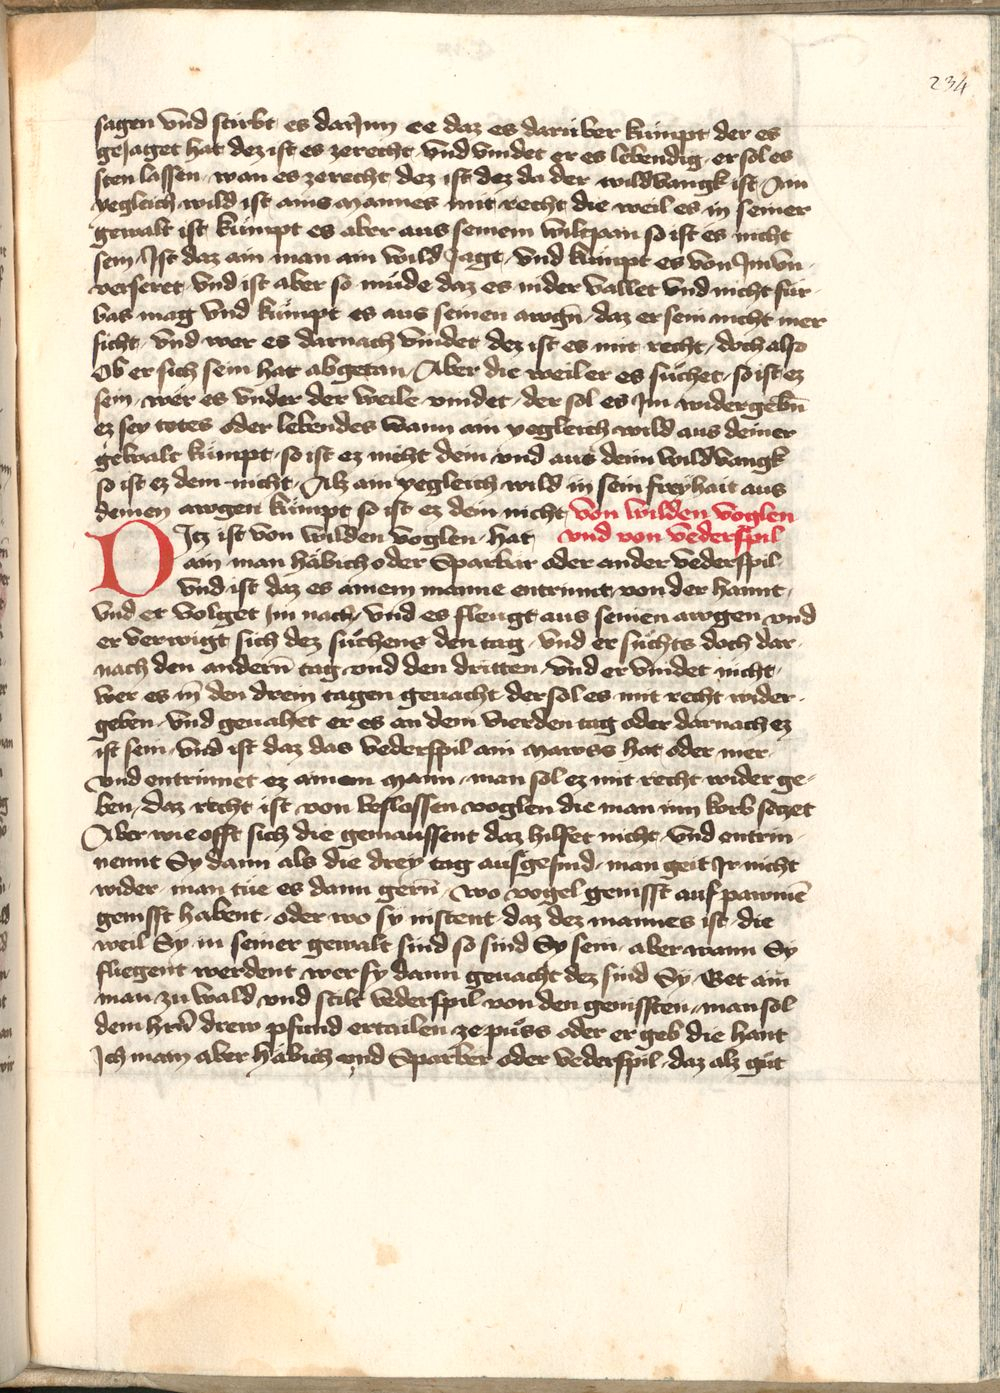 234
sagen vnd stirbt es darJnn ee daz es darüber kümpt der es
geJaget hat dez ist es zerecht vnd vindet er es lebendig er sol es
sten lassen wan es zerecht dez ist dez da der wildbangk ist Ain
yegleich wild ist ains mannes mit recht die weil es in seiner
gewalt ist kümpt es aber aus seinem wiltpan so ist es nicht
sein Ist daz ain man ain wild Jagt vnd kümpt es von Jm vn
verseret vnd ist aber so müde daz es nider vallet vnd nicht für
bas mag vnd kümpt es aus seinen awgn̄ daz er sein nicht mer
sicht vnd wer es darnach vindet dez ist es mit recht doch also
Ob er sich sein hat abgetan Aber die weil er es süchet so ist ez
sein wer es vnder der weile vindet der sol es Jm widergebn̄
ez sey totes oder lebendes wann ain yegleich wild aus deiner
gewalt kümpt so ist ez nicht dein vnd aus deim wildbangk
so ist ez dein nicht Alz ain yegleich wild in sein freyhait aus
deinen awgen kümpt so ist ez dein nicht von wilden voglen
DItz ist von wilden voglen hat vnd von vederspil
ain man häbich oder Sparbär oder ander vederspil
vnd ist daz es ainem manne entrinnt von der hannt
vnd er volget Jm nach vnd es fleugt aus seinen awgen vnd
er verwigt sich dez süchens den tag vnd er süchts doch dar
nach den andern̄ tag vnd den dritten vnd er vindet nicht
wer es in̄ den drein tagen geuacht der sol es mit recht wider
geben vnd geuahet er es an dem vierden tag oder darnach ez
ist sein vnd ist daz das vederspil ain mawss hat oder mer
vnd entrinnet ez ainem mann man sol ez mit recht wider ge-
ben daz recht ist von beslossen voglen die man inn korb seczet
Aber wie offt sich die gemaussent daz hilfet nicht vnd entrin
nennt Sy dann als die drey tag ausgesind man geit Jr nicht
wider man tüe es dann gern̄ wo vogel genisst auf pawmē
genisst habent oder wo sy nistent daz dez mannes ist die
weil Sy in seiner gewalt sind so sind Sy sein aber wann Sy
fliegent werdent wer sy dann geuacht dez sind Sy Get ain
man zu wald vnd stilt vederspil von den genissten man sol
dem hrn̄ drew pfund ertailen ze püss oder er geb die hant
Ich main aber häbich vnd Sparber oder vederspil daz alz güt